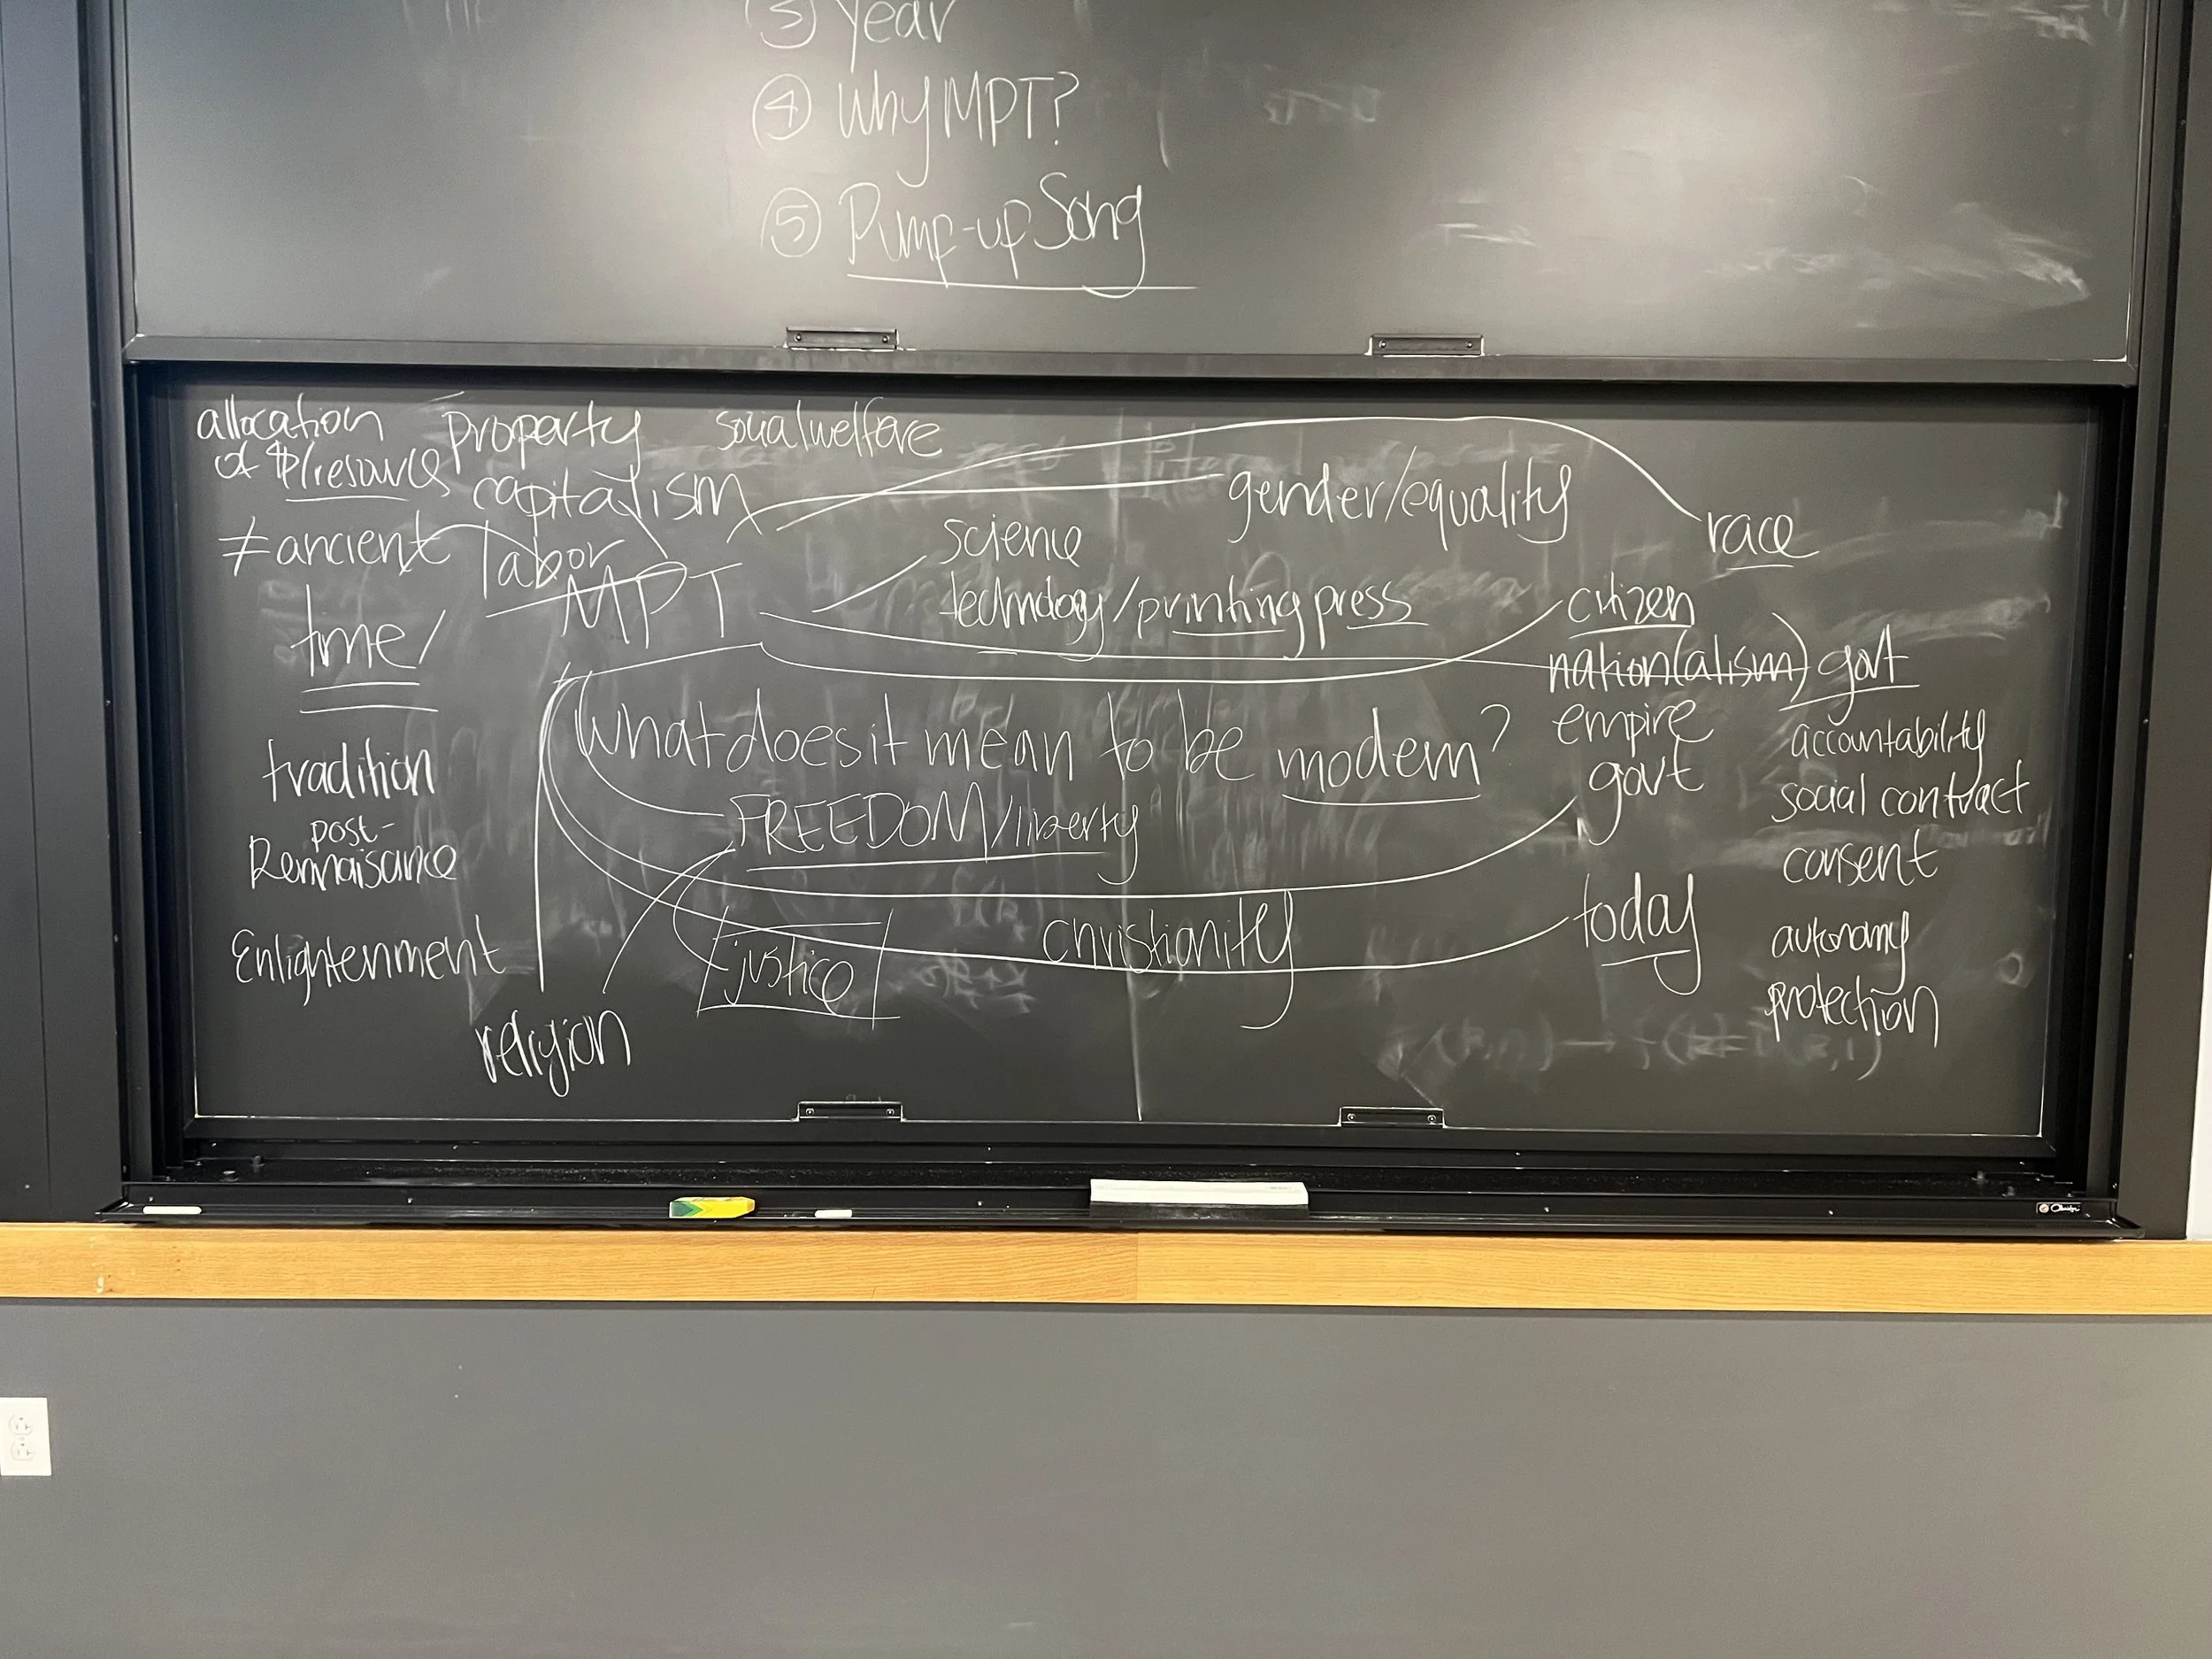 ③ Year
④ Why MPT?
⑤ Pump-up Song
allocation
of $/resources
property
social welfare
capitalism
gender/equality
race
≠ ancient
labor
science
MPT
technology/printing press
citizen
time/
nation(alism)
govt
What does it mean to be modern?
empire
accountability
govt
tradition
social contract
FREEDOM/liberty
post-
Rennaisance
consent
today
christianity
autonomy
Enlightenment
justice
protection
religion